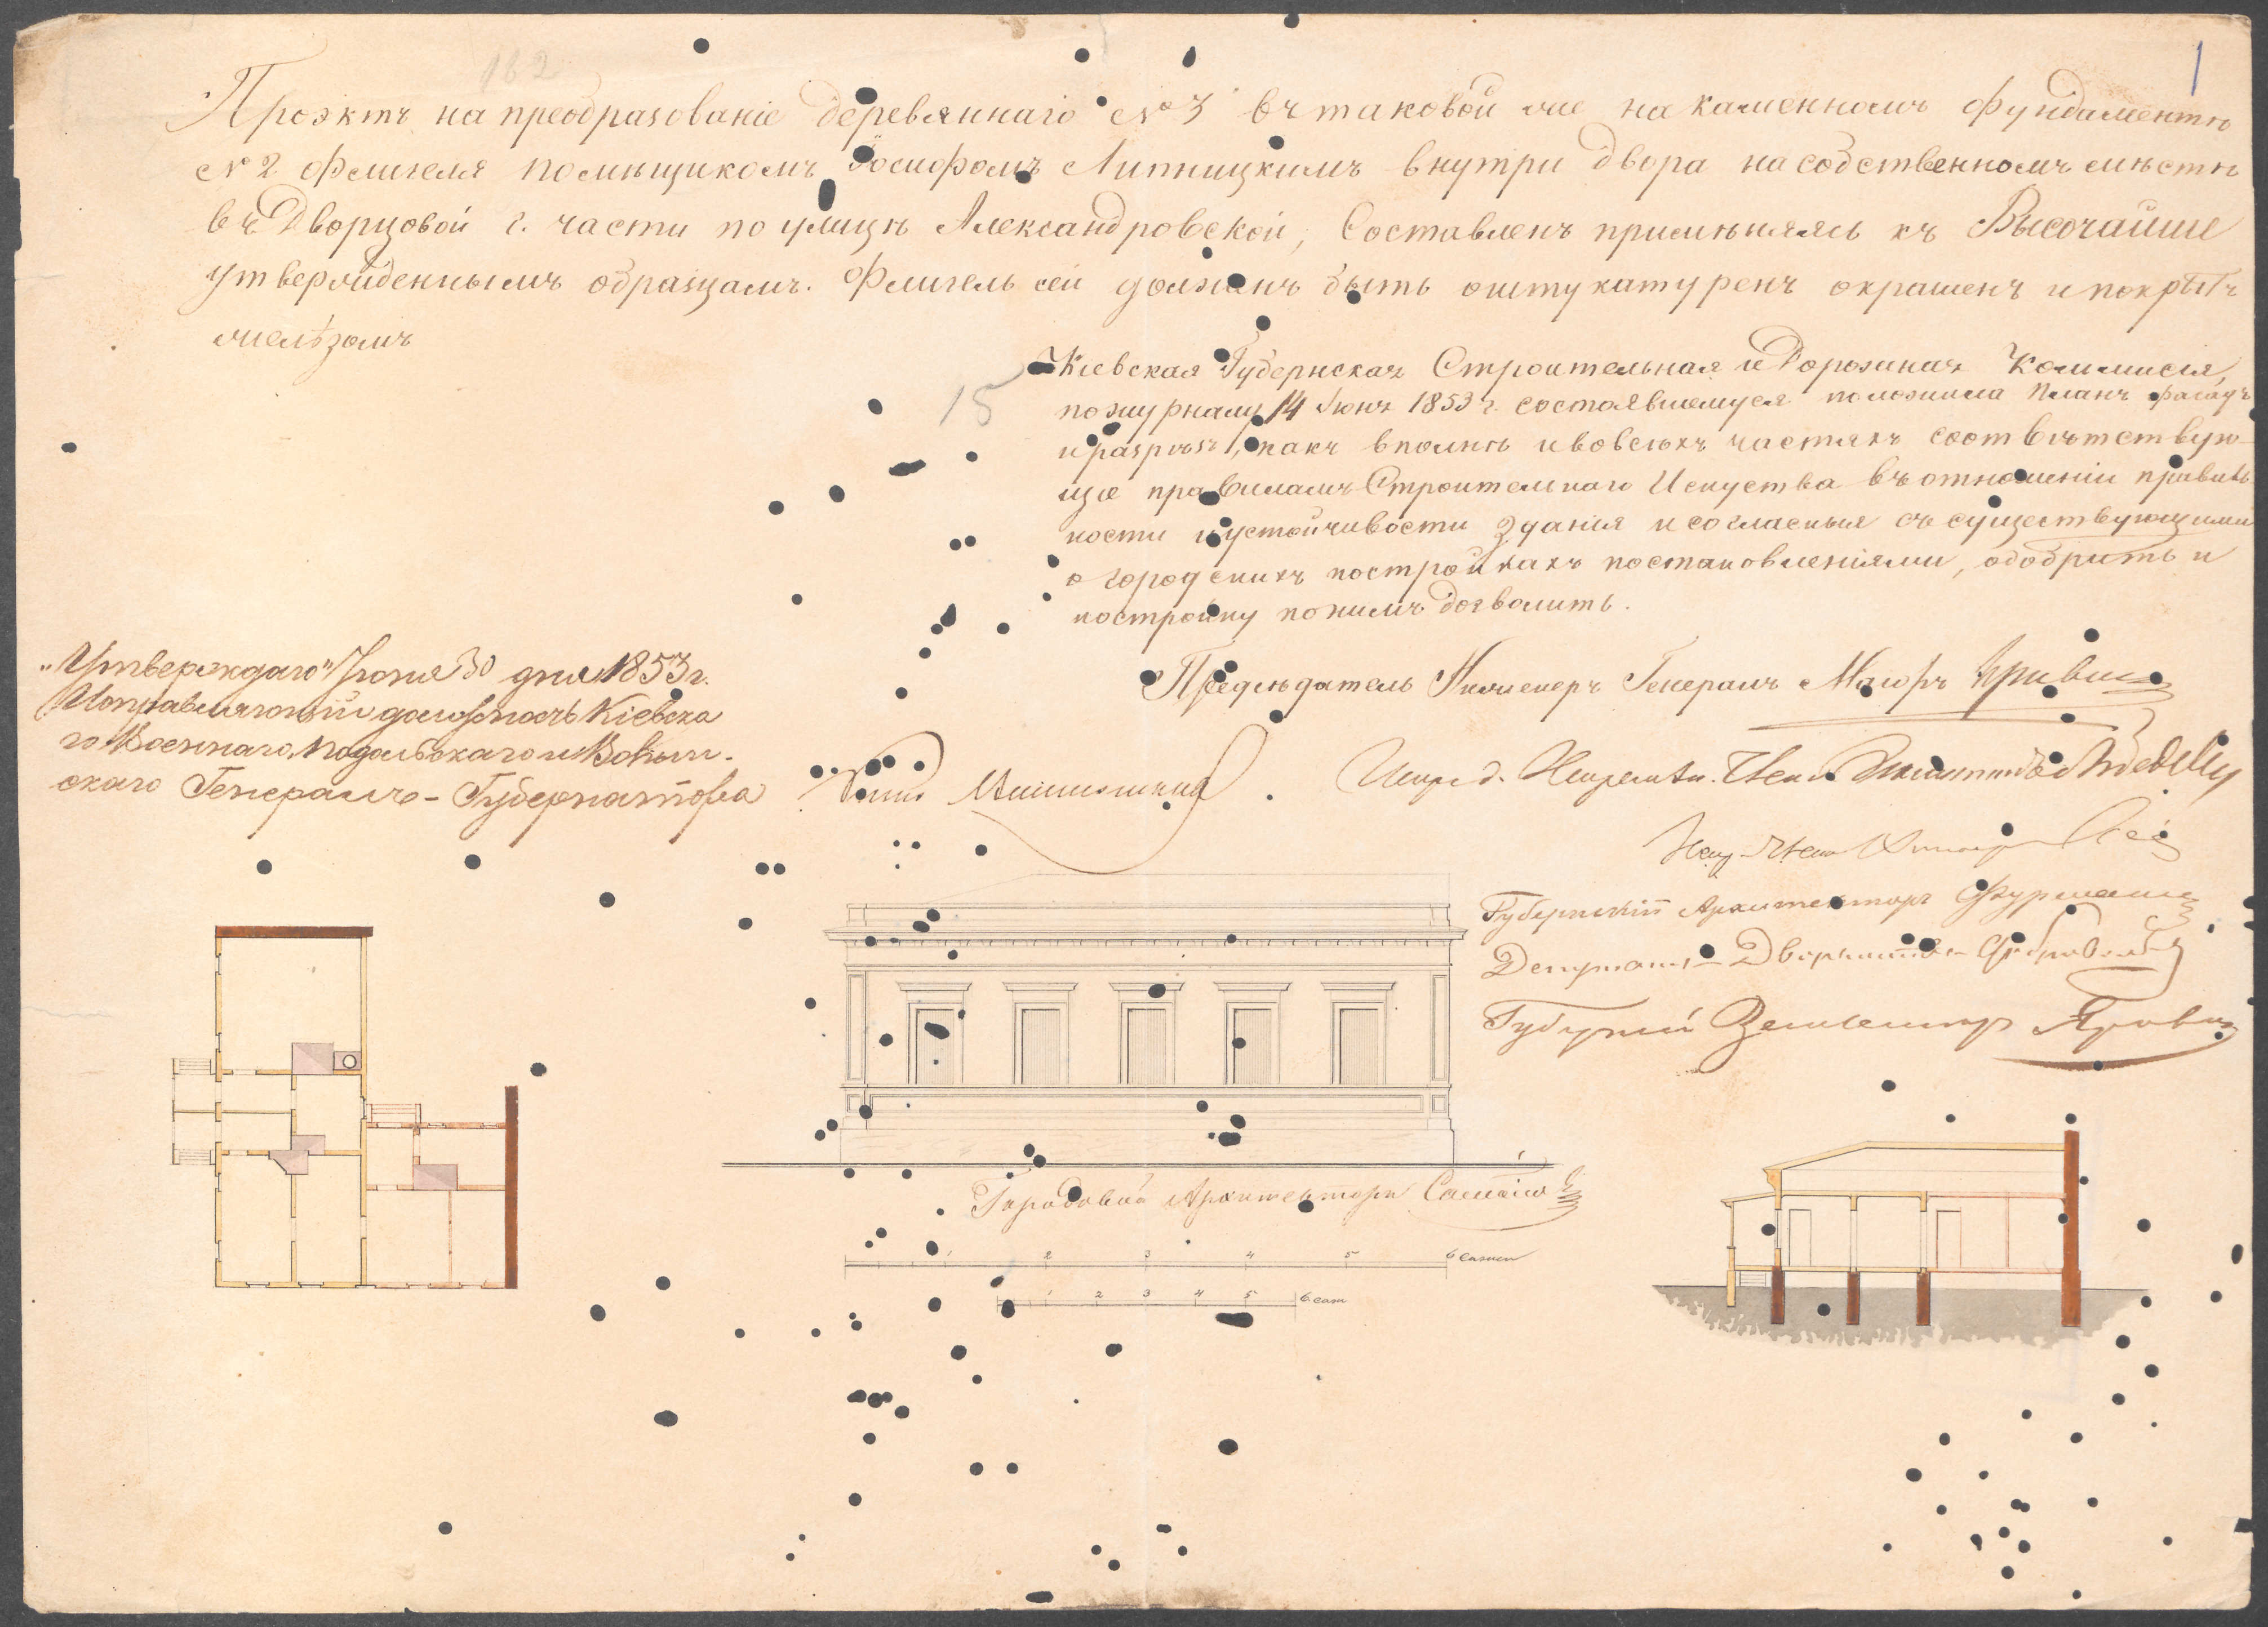 182
1
Проэктъ на преобразованіе деревяннаго № 3 въ таковой же на каменномъ фундаментѣ
№ 2 флигеля помѣщикомъ Іосифомъ Липницкимъ внутри двора на собственномъ мѣстѣ
въ Дворцовой г. части по улицѣ Александровской, Составленъ примѣняясь къ Высочайше
утвержденнымъ образцамъ. Флигель сей долженъ быть оштукатуренъ окрашенъ и покрытъ
желѣзомъ
15
Кіевская Губернская Строительная и Дорожная Коммисія,
по журналу 14 Іюня 1853 г. состоявшемуся положила планъ фасадъ
и разрѣзъ, какъ вполнѣ и во всѣхъ частяхъ соотвѣтствую-
щіе правиламъ Строительнаго Искуства въ отношеніи правиль
ности и устойчивости зданія и согласныя съ существующими
о городскихъ постройкахъ постановленіями, одобрить и
постройку по нимъ дозволить.
"Утверждаю" Іюня 30 дня 1853 г.
Исправляющій должность Кіевска
го Военнаго, Подольскаго и Волын-
скаго Генералъ-Губернатора
Предсѣдатель Инженеръ Генералъ Маіоръ
Губернскій Архитекторъ
Депутатъ Дворянства
Губернскій Землемѣръ
Городовой Архитекторъ
1 2 3 4 5 6 сажен
1 2 3 4 5 6 саж